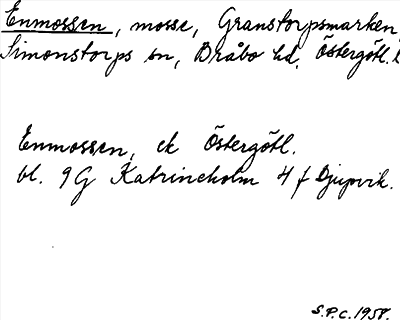 Enmossen, mosse, Granstorpsmarken,
Simonstorps sn, Bråbo hd, Östergötl.
Enmossen, ek Östergötl.
bl. 9G Katrineholm 4 f Djupvik.
S.P.C. 1958.